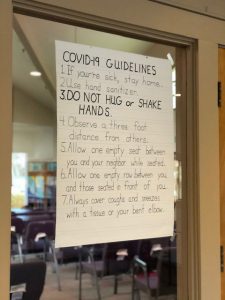 COVID-19 GUIDELINES
1. If you're sick, stay home.
2. Use hand sanitizer.
3. DO NOT HUG or SHAKE
HANDS.
4. Observe a three foot
distance from others.
5. Allow one empty seat between
you and your neighbor while seated.
6. Allow one empty row between you
and those seated in front of you.
7. Always cover coughs and sneezes
with a tissue or your bent elbow.